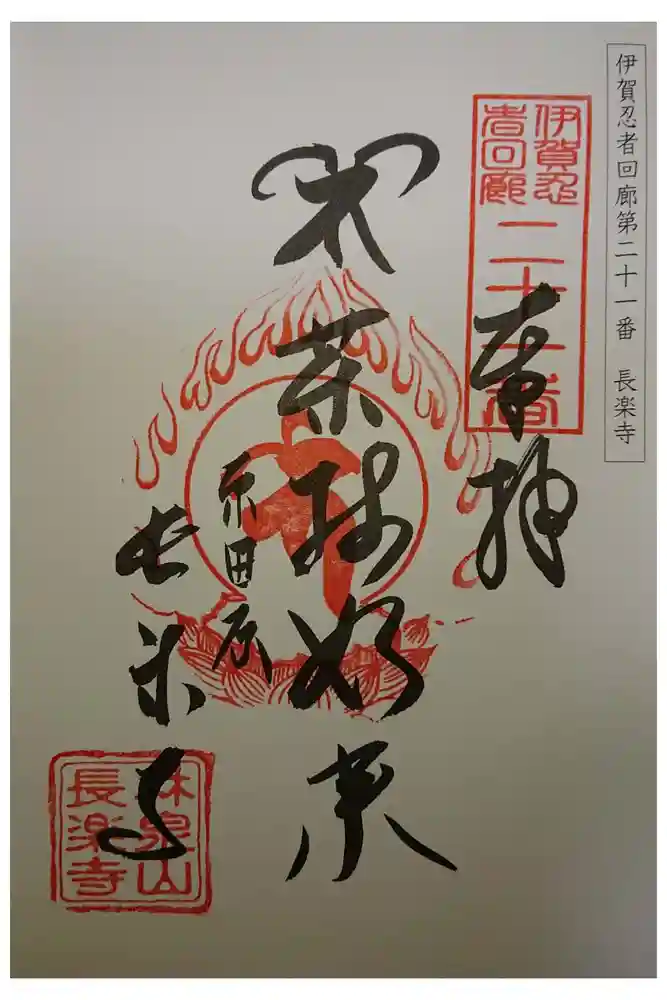 伊賀忍者回廊第二十一番　長楽寺
伊賀忍
者回廊
二十一番
奉拝
薬師如来
長楽寺
林泉山
長楽寺